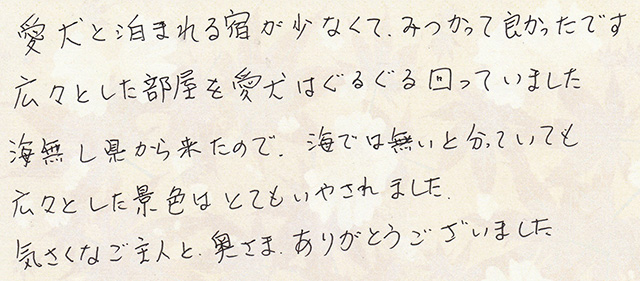 愛犬と泊まれる宿が少なくて、みつかって良かったです
広々とした部屋を愛犬はぐるぐる回っていました
海無し県から来たので、海では無いと分っていても
広々とした景色はとてもいやされました。
気さくなご主人と、奥さま、ありがとうございました